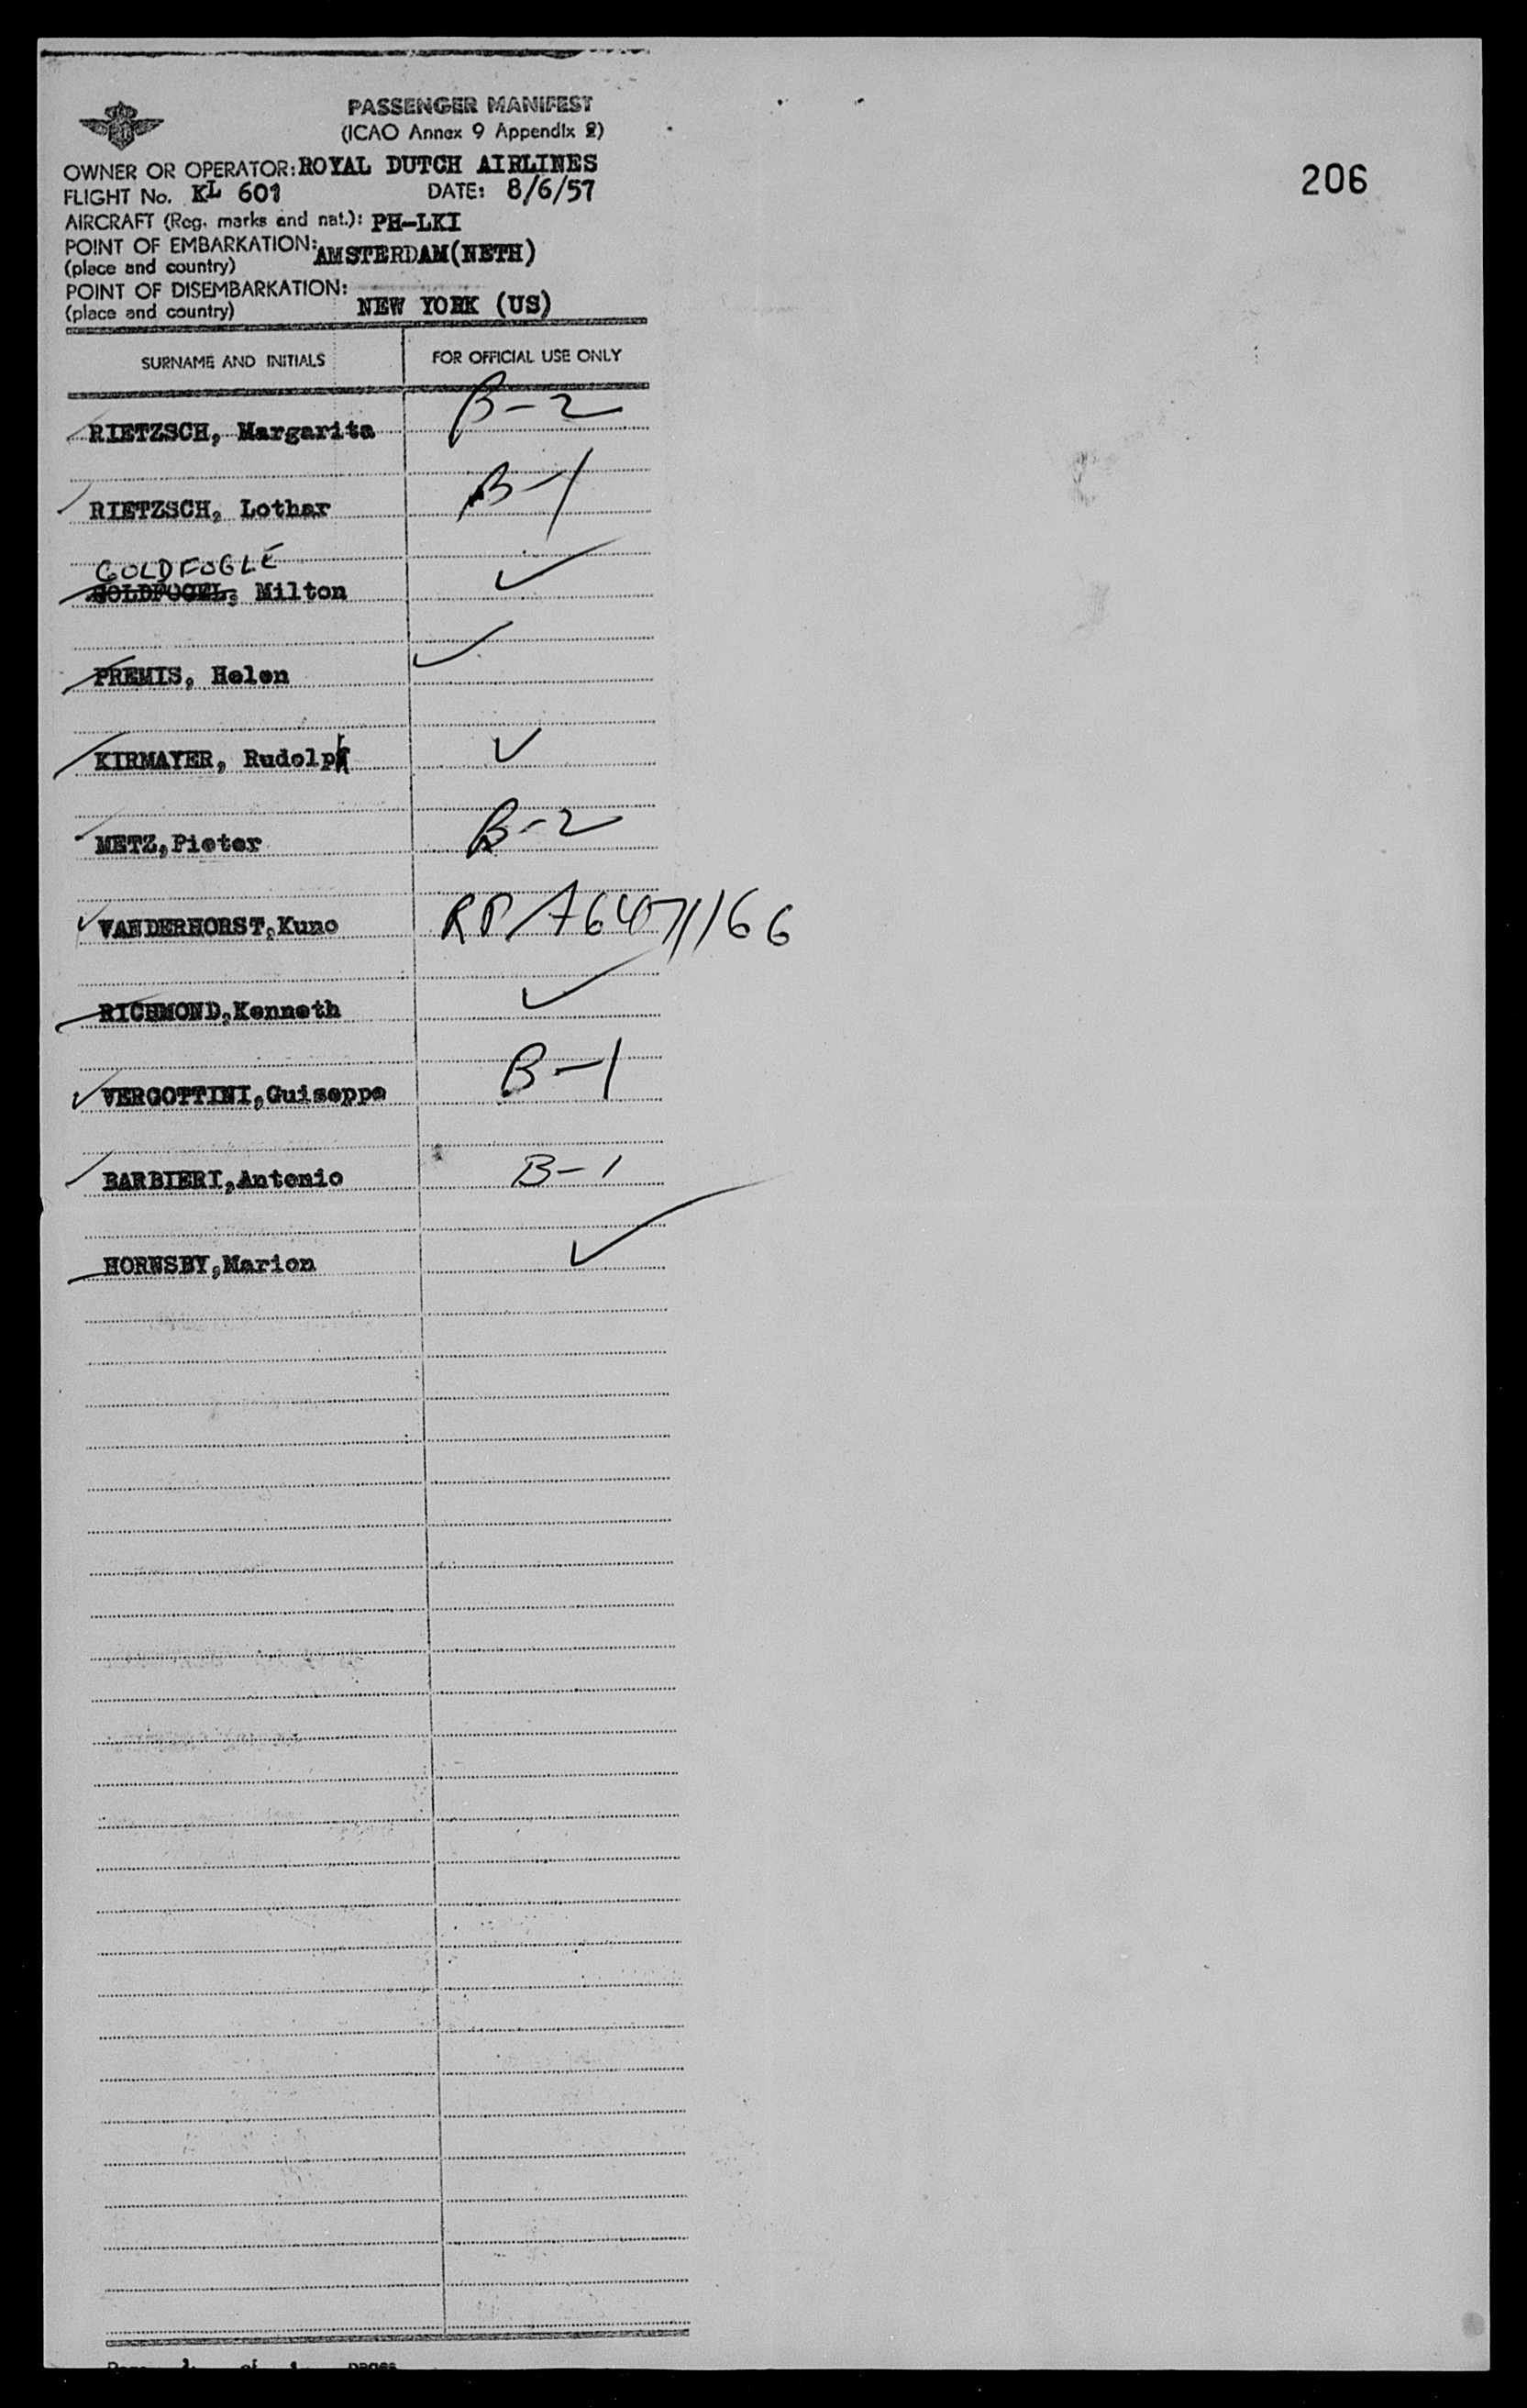 PASSENGER MANIFEST
(ICAO Annex 9 Appendix 2)
206
OWNER OR OPERATOR: ROYAL DUTCH AIRLINES
FLIGHT No. KL 601 DATE: 8/6/57
AIRCRAFT (Reg. marks and nat.): PH-LKI
POINT OF EMBARKATION: AMSTERDAM(NETH)
(place and country)
POINT OF DISEMBARKATION:
(place and country) NEW YORK (US)
SURNAME AND INITIALS FOR OFFICIAL USE ONLY
RIETZSCH, Margarita B-2
RIETZSCH, Lothar B-1
GOLDFOGLE
GOLDFOGEL, Milton ✓
PREMIS, Helen ✓
KIRMAYER, Rudolph ✓
METZ,Pieter B-2
VANDERHORST,Kuno RP/A6471166
RICHMOND,Kenneth ✓
VERGOTTINI,Guiseppe B-1
BARBIERI,Antonio B-1
HORNSBY,Marion ✓
Page 1 of 1 pages